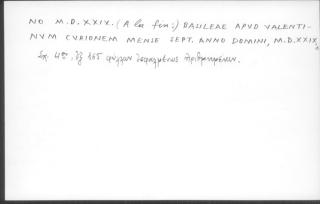 NO M.D.XXIX. (A la fin:) BASILEAE APVD VALENTI-
NVM CVRIONEM MENSE SEPT. ANNO DOMINI, M.D.XXIX.
Σχ. 4ον, ἐξ 165 φύλλων ἐσφαλμένως ἠριθμημένων.